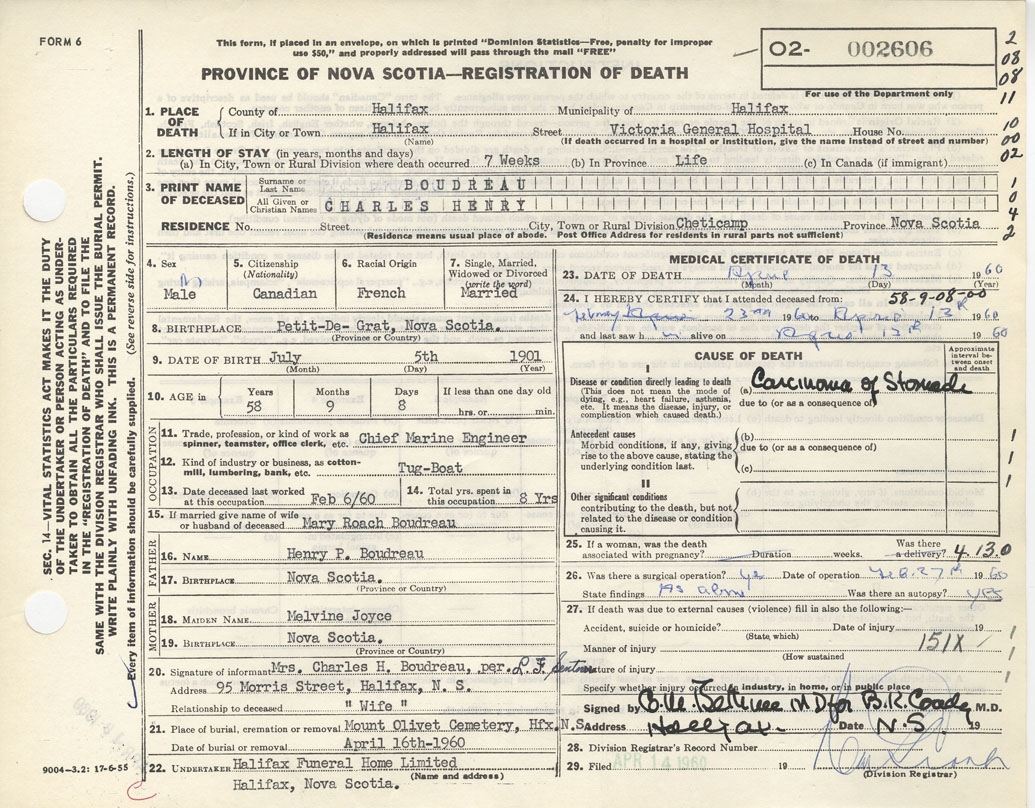 FORM 6
This form, if placed in an envelope, on which is printed "Dominion Statistics—Free, penalty for improper
use $50," and properly addressed will pass through the mail "FREE"
O2- 002606
For use of the Department only
PROVINCE OF NOVA SCOTIA—REGISTRATION OF DEATH
2
08
08
11
10
00
02
1
0
4
2
1. PLACE OF DEATH
County of Halifax Municipality of Halifax
If in City or Town Halifax Street Victoria General Hospital House No.
(Name) (If death occurred in a hospital or institution, give the name instead of street and number)
2. LENGTH OF STAY (in years, months and days)
(a) In City, Town or Rural Division where death occurred 7 Weeks (b) In Province Life (c) In Canada (if immigrant)
3. PRINT NAME OF DECEASED
Surname or Last Name BOUDREAU
All Given or Christian Names CHARLES HENRY
RESIDENCE No. Street City, Town or Rural Division Cheticamp Province Nova Scotia
(Residence means usual place of abode. Post Office Address for residents in rural parts not sufficient)
4. Sex
Male
5. Citizenship
(Nationality)
Canadian
6. Racial Origin
French
7. Single, Married,
Widowed or Divorced
(write the word)
Married
8. BIRTHPLACE Petit-De- Grat, Nova Scotia.
(Province or Country)
9. DATE OF BIRTH July 5th 1901
(Month) (Day) (Year)
10. AGE in Years Months Days If less than one day old
58 9 8 hrs. or min.
OCCUPATION
11. Trade, profession, or kind of work as
spinner, teamster, office clerk, etc. Chief Marine Engineer
12. Kind of industry or business, as cotton-
mill, lumbering, bank, etc. Tug-Boat
13. Date deceased last worked
at this occupation Feb 6/60
14. Total yrs. spent in
this occupation 8 Yrs
15. If married give name of wife
or husband of deceased Mary Roach Boudreau
FATHER
16. NAME Henry P. Boudreau
17. BIRTHPLACE Nova Scotia.
(Province or Country)
MOTHER
18. MAIDEN NAME Melvine Joyce
19. BIRTHPLACE Nova Scotia.
(Province or Country)
20. Signature of informant Mrs. Charles H. Boudreau, per. L.F.
Address 95 Morris Street, Halifax, N. S.
Relationship to deceased " Wife "
21. Place of burial, cremation or removal Mount Olivet Cemetery, Hfx.N.S.
Date of burial or removal April 16th-1960
22. UNDERTAKER Halifax Funeral Home Limited
(Name and address)
Halifax, Nova Scotia.
MEDICAL CERTIFICATE OF DEATH
23. DATE OF DEATH April 13 1960
(Month) (Day) (Year)
24. I HEREBY CERTIFY that I attended deceased from: 58-9-08-00
23rd 1960 to April 13th 1960
and last saw h alive on April 13th 1960
CAUSE OF DEATH
Approximate interval between onset and death
I
Disease or condition directly leading to death
(This does not mean the mode of
dying, e.g., heart failure, asthenia,
etc. It means the disease, injury, or
complication which caused death.)
(a) Carcinoma of Stomach
due to (or as a consequence of)
Antecedent causes
Morbid conditions, if any, giving
rise to the above cause, stating the
underlying condition last.
(b)
due to (or as a consequence of)
(c)
II
Other significant conditions
contributing to the death, but not
related to the disease or condition
causing it.
1
1
1
25. If a woman, was the death
associated with pregnancy? Duration weeks. Was there
a delivery? 4 13.0
26. Was there a surgical operation? yes Date of operation Feb. 27th 1960
State findings As above Was there an autopsy? yes
27. If death was due to external causes (violence) fill in also the following:—
Accident, suicide or homicide? Date of injury 19
(State which)
Manner of injury 151X
(How sustained)
Nature of injury
Specify whether injury occurred in industry, in home, or in public place
Signed by MD for B.K. Coady M.D.
Address Halifax. Date N.S. 19
28. Division Registrar's Record Number
29. Filed APR 14 1960 19
(Division Registrar)
SEC. 14—VITAL STATISTICS ACT MAKES IT THE DUTY
OF THE UNDERTAKER OR PERSON ACTING AS UNDER-
TAKER TO OBTAIN ALL THE PARTICULARS REQUIRED
IN THE "REGISTRATION OF DEATH" AND TO FILE THE
SAME WITH THE DIVISION REGISTRAR WHO SHALL ISSUE THE BURIAL PERMIT.
WRITE PLAINLY WITH UNFADING INK. THIS IS A PERMANENT RECORD.
Every item of information should be carefully supplied. (See reverse side for instructions.)
9004-3.2: 17-6-55